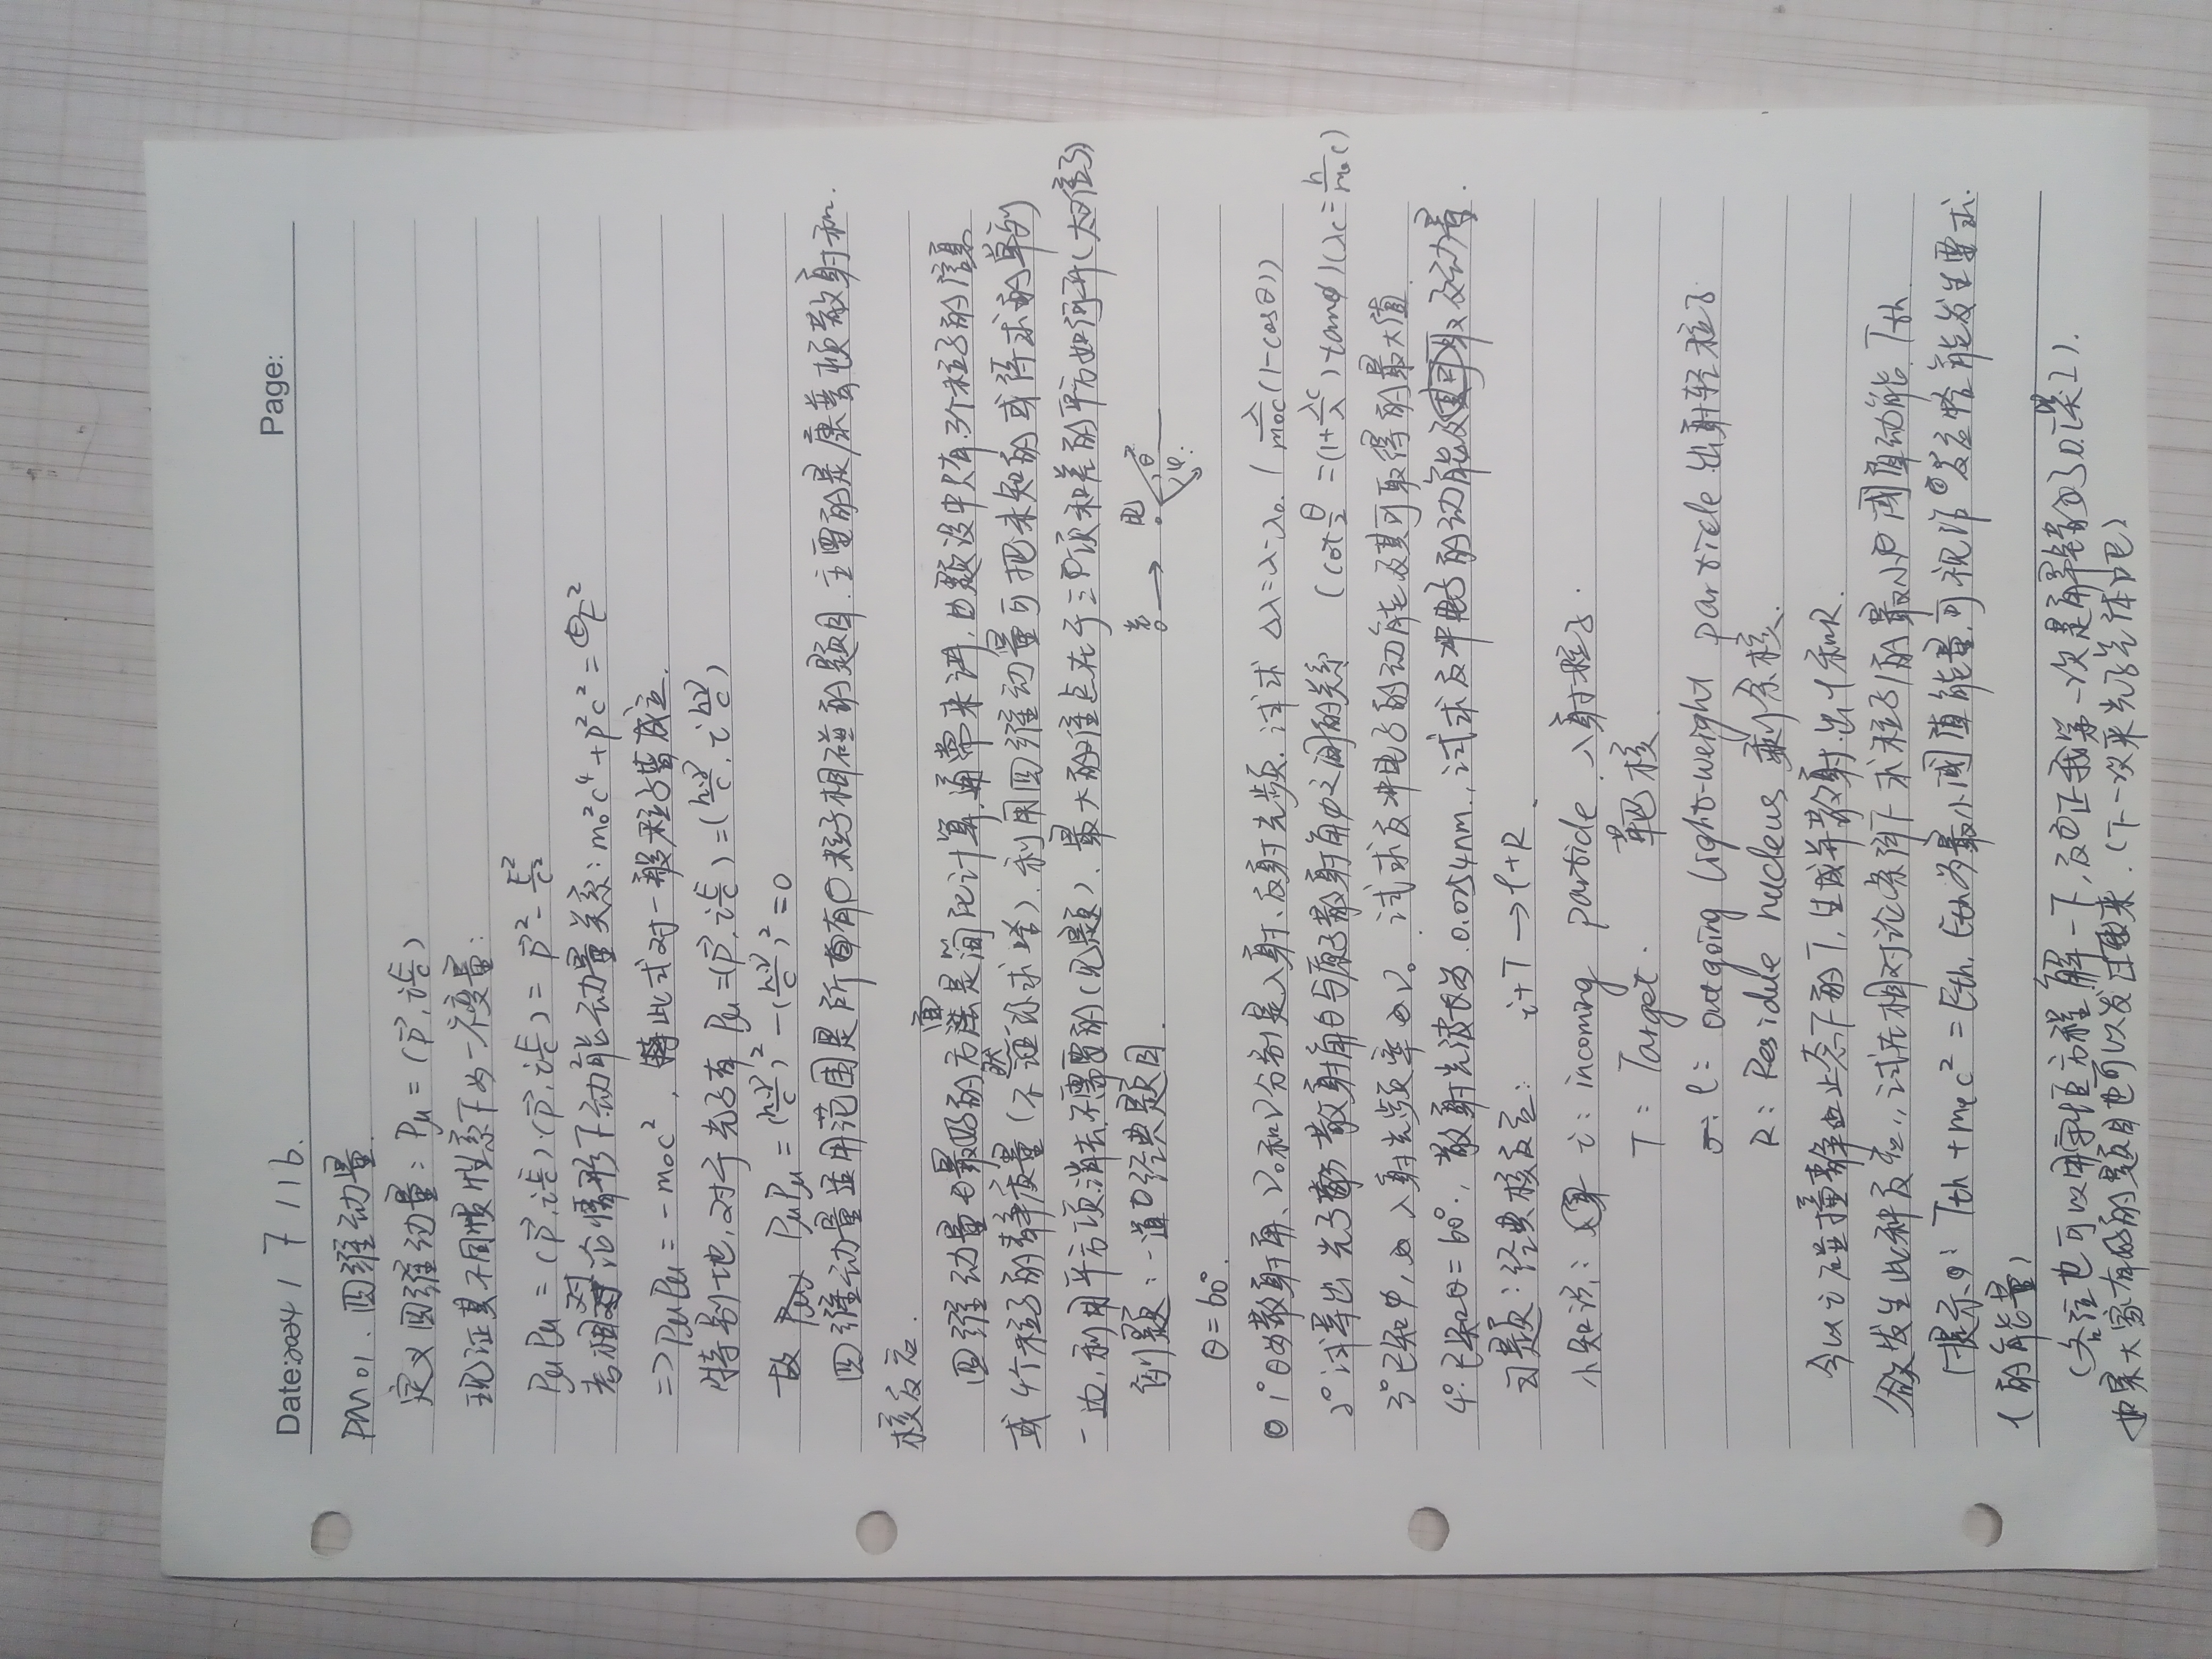 Page:
Date: 2024 / 7 / 16.
PM01. 四维动量
定义四维动量: Pμ = (P⃗, iE/c)
现证其不同惯性系下为一不变量:
PμPμ = (P⃗, iE/c)·(P⃗, iE/c) = P⃗² - E²/c²
考相对论情形下动能动量关系: m₀²c⁴ + P²c² = E²
=> PμPμ = -m₀c², 此式对一般粒子皆成立.
特别地, 对于光子有 Pμ = (P⃗, iE/c) = (hν/c, i hν/c)
故 PμPμ = (hν/c)² - (hν/c)² = 0
四维动量适用范围是所有粒子相碰的题目. 主要的是康普顿散射和
核反应.
四维动量最好的方面是简化计算, 通常来讲, 题设中只有3个粒子的信息
或4个粒子的静质量 (不然证你求啥), 利用四维动量可把未知的或所求的单列
一边, 利用平方项消去不需要的 (见题). 最大的难点在于三项和差的平方如何开 (大雾)
例题: 一道经典题目
光 → 电 θ φ
θ = 60°.
1° θ为散射角, ν₀和ν分别是入射、反射光频. 试求 Δλ = λ - λ₀. (λ/m₀c (1-cosθ))
2° 试导出光子散射角θ与原子散射角φ之间的关系 (cot θ/2 = (1 + λc/λ) tanφ) (λc = h/m₀c)
3° 已知φ, 入射光频率ν₀. 试求反冲电子的动能及其可取得的最大值.
4°. 已知θ = 60°., 散射光波长为 0.0254nm., 试求反冲电子的动能及动量.
习题: 经典核反应: i + T → l + R.
小知识: i: incoming particle 入射粒子.
T: Target. 靶核
l: outgoing light-weight particle 出射轻粒子
R: Residue nucleus 剩余核.
今以i碰撞静止态下的T, 生成并散射出l和R.
激发发生此种反应, 试在相对论条件下求粒子i的最小阈值动能 Tth
[提示: Tth + mic² = Eth, Eth为最小阈值能量, 可视作反应恰能发生要求
(的能量)
(各位也可以用守恒方程解一下, 反正我第一次是解错了().
如果大家有好的题目也可以发过来. (下一次来光学流体吧)